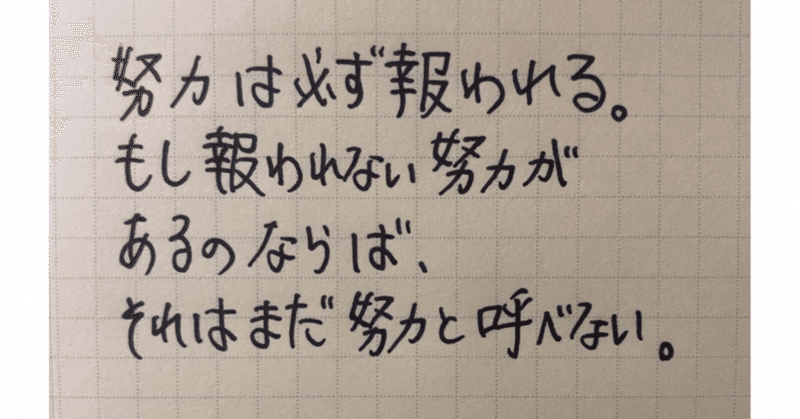 努力は必ず報われる。
もし報われない努力が
あるのならば、
それはまだ努力と呼べない。